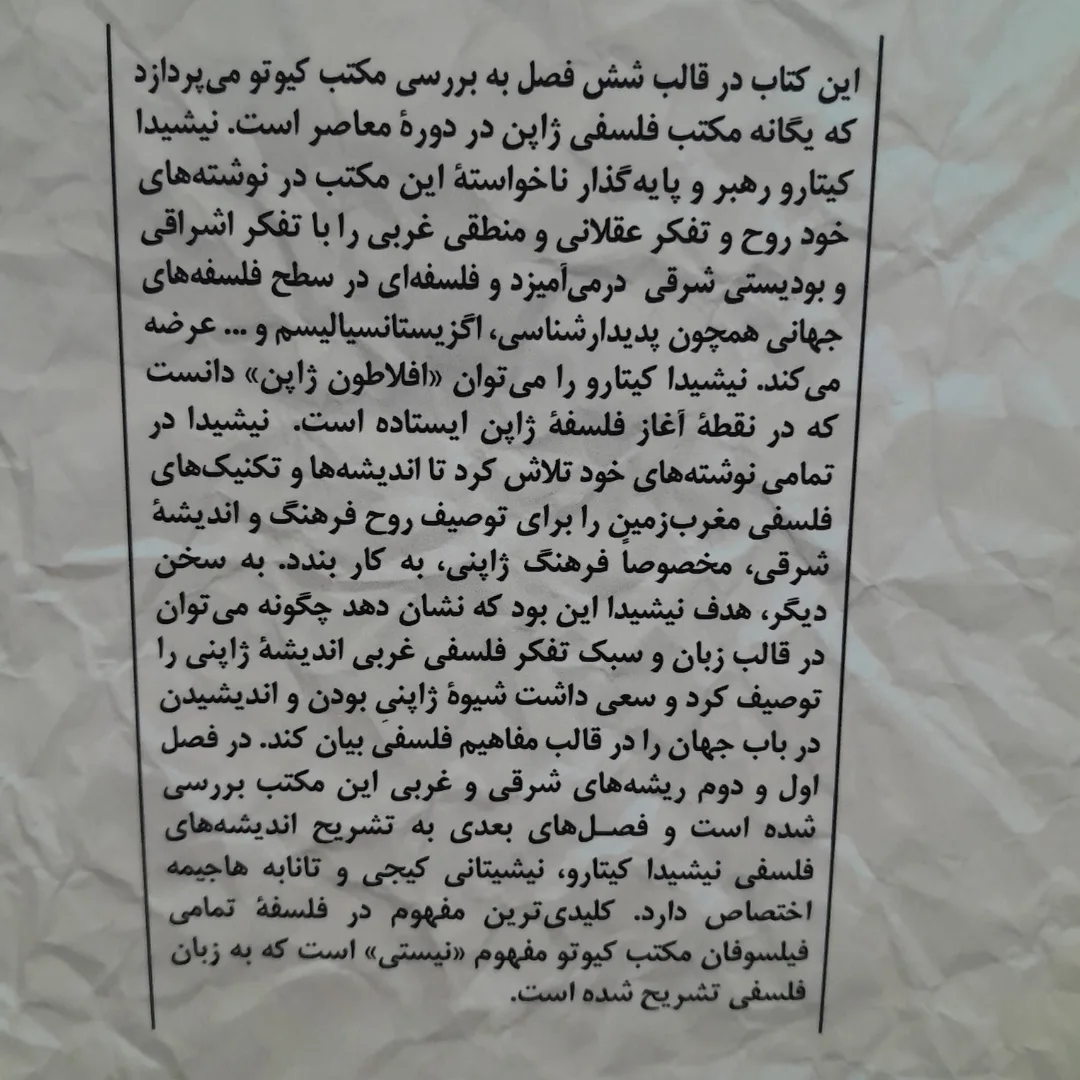 این کتاب در قالب شش فصل به بررسی مکتب کیوتو می‌پردازد
که یگانه مکتب فلسفی ژاپن در دورهٔ معاصر است. نیشیدا
کیتارو رهبر و پایه‌گذار ناخواستهٔ این مکتب در نوشته‌های
خود روح و تفکر عقلانی و منطقی غربی را با تفکر اشراقی
و بودیستی شرقی درمی‌آمیزد و فلسفه‌ای در سطح فلسفه‌های
جهانی همچون پدیدارشناسی، اگزیستانسیالیسم و ... عرضه
می‌کند. نیشیدا کیتارو را می‌توان «افلاطون ژاپن» دانست
که در نقطهٔ آغاز فلسفهٔ ژاپن ایستاده است. نیشیدا در
تمامی نوشته‌های خود تلاش کرد تا اندیشه‌ها و تکنیک‌های
فلسفی مغرب‌زمین را برای توصیف روح فرهنگ و اندیشهٔ
شرقی، مخصوصاً فرهنگ ژاپنی، به کار بندد. به سخن
دیگر، هدف نیشیدا این بود که نشان دهد چگونه می‌توان
در قالب زبان و سبک تفکر فلسفی غربی اندیشهٔ ژاپنی را
توصیف کرد و سعی داشت شیوهٔ ژاپنیِ بودن و اندیشیدن
در باب جهان را در قالب مفاهیم فلسفی بیان کند. در فصل
اول و دوم ریشه‌های شرقی و غربی این مکتب بررسی
شده است و فصـل‌های بعدی به تشریح اندیشه‌های
فلسفی نیشیدا کیتارو، نیشیتانی کیجی و تانابه هاجیمه
اختصاص دارد. کلیدی‌ترین مفهوم در فلسفهٔ تمامی
فیلسوفان مکتب کیوتو مفهوم «نیستی» است که به زبان
فلسفی تشریح شده است.